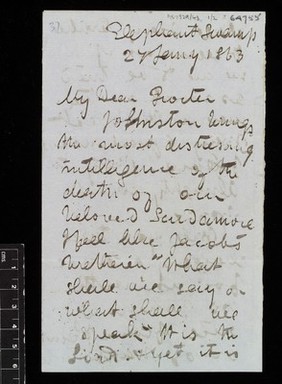 Elephant Swamp
27 Jany 1863
My Dear Procter
Johnston brings
the most distressing
intelligence of the
death of our
beloved Scudamore
I feel like Jacobs
"What
shall we say or
what shall we
speak" It is the
Lord & yet it is